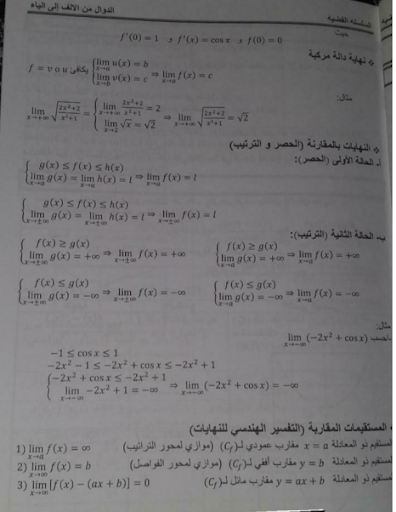 الدوال من الألف إلى الياء
السلسلة الفضية
حيث f(0) = 0 و f'(x) = cos x و f'(0) = 1
نهاية دالة مركبة
f = v o u يكافئ { lim_{x→a} u(x) = b ; lim_{x→b} v(x) = c ⇒ lim_{x→a} f(x) = c
مثال:
lim_{x→+∞} √((2x²+2)/(x²+1)) = { lim_{x→+∞} (2x²+2)/(x²+1) = 2 ; lim_{x→2} √x = √2 ⇒ lim_{x→+∞} √((2x²+2)/(x²+1)) = √2
النهايات بالمقارنة (الحصر و الترتيب)
أ- الحالة الأولى (الحصر):
{ g(x) ≤ f(x) ≤ h(x) ; lim_{x→a} g(x) = lim_{x→a} h(x) = l ⇒ lim_{x→a} f(x) = l
{ g(x) ≤ f(x) ≤ h(x) ; lim_{x→±∞} g(x) = lim_{x→±∞} h(x) = l ⇒ lim_{x→±∞} f(x) = l
ب- الحالة الثانية (الترتيب):
{ f(x) ≥ g(x) ; lim_{x→±∞} g(x) = +∞ ⇒ lim_{x→±∞} f(x) = +∞
{ f(x) ≥ g(x) ; lim_{x→a} g(x) = +∞ ⇒ lim_{x→a} f(x) = +∞
{ f(x) ≤ g(x) ; lim_{x→±∞} g(x) = −∞ ⇒ lim_{x→±∞} f(x) = −∞
{ f(x) ≤ g(x) ; lim_{x→a} g(x) = −∞ ⇒ lim_{x→a} f(x) = −∞
مثال:
احسب lim_{x→−∞} (−2x² + cos x)
−1 ≤ cos x ≤ 1
−2x² − 1 ≤ −2x² + cos x ≤ −2x² + 1
{ −2x² + cos x ≤ −2x² + 1 ; lim_{x→−∞} −2x² + 1 = −∞ ⇒ lim_{x→−∞} (−2x² + cos x) = −∞
المستقيمات المقاربة (التفسير الهندسي للنهايات)
1) lim_{x→a} f(x) = ∞ المستقيم ذو المعادلة x = a مقارب عمودي لـ (C_f) (موازي لمحور التراتيب)
2) lim_{x→∞} f(x) = b المستقيم ذو المعادلة y = b مقارب أفقي لـ (C_f) (موازي لمحور الفواصل)
3) lim_{x→∞} [f(x) − (ax + b)] = 0 المستقيم ذو المعادلة y = ax + b مقارب مائل لـ (C_f)